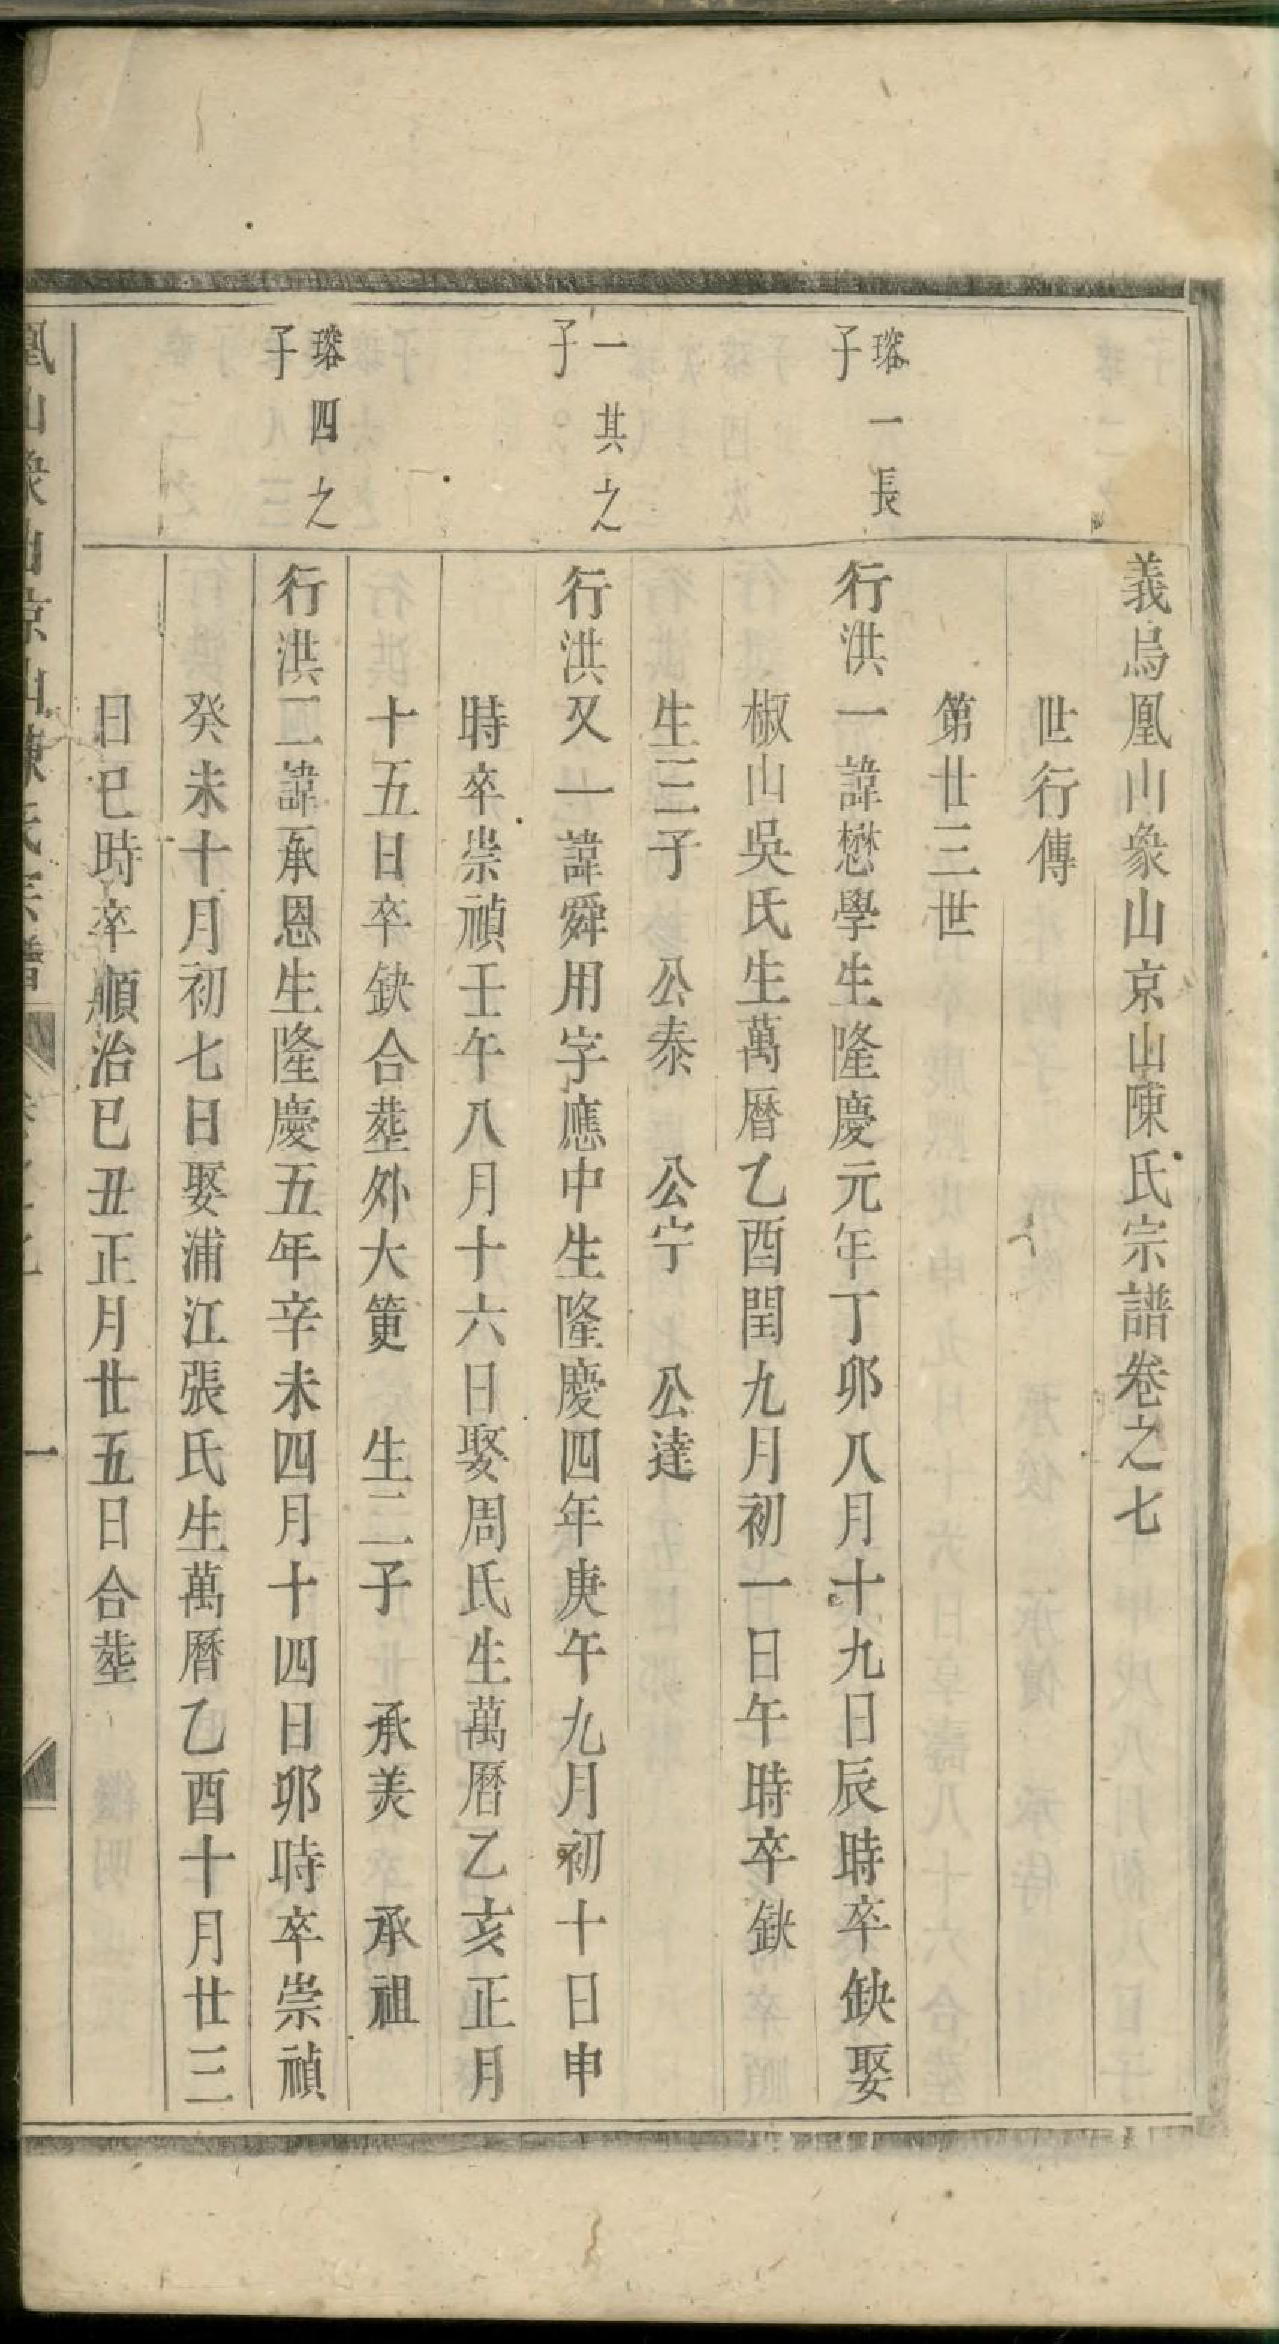 義烏鳳山象山京山陳氏宗譜卷之七
世行傳
第廿三世
瑹一長
子
行洪一諱懋學生隆慶元年丁卯八月十九日辰時卒缺娶
椒山吳氏生萬曆乙酉閏九月初一日午時卒缺
生三子 公泰 公宁 公達
一其之
子
行洪又一諱舜用字應中生隆慶四年庚午九月初十日申
時卒崇禎壬午八月十六日娶周氏生萬曆乙亥正月
十五日卒缺合塟外大㚔 生二子 承美 承祖
瑹四之
子
行洪二諱承恩生隆慶五年辛未四月十四日卯時卒崇禎
癸未十月初七日娶浦江張氏生萬曆乙酉十月廿三
日巳時卒順治己丑正月廿五日合塟
鳳山象山京山陳氏宗譜 卷之七 一